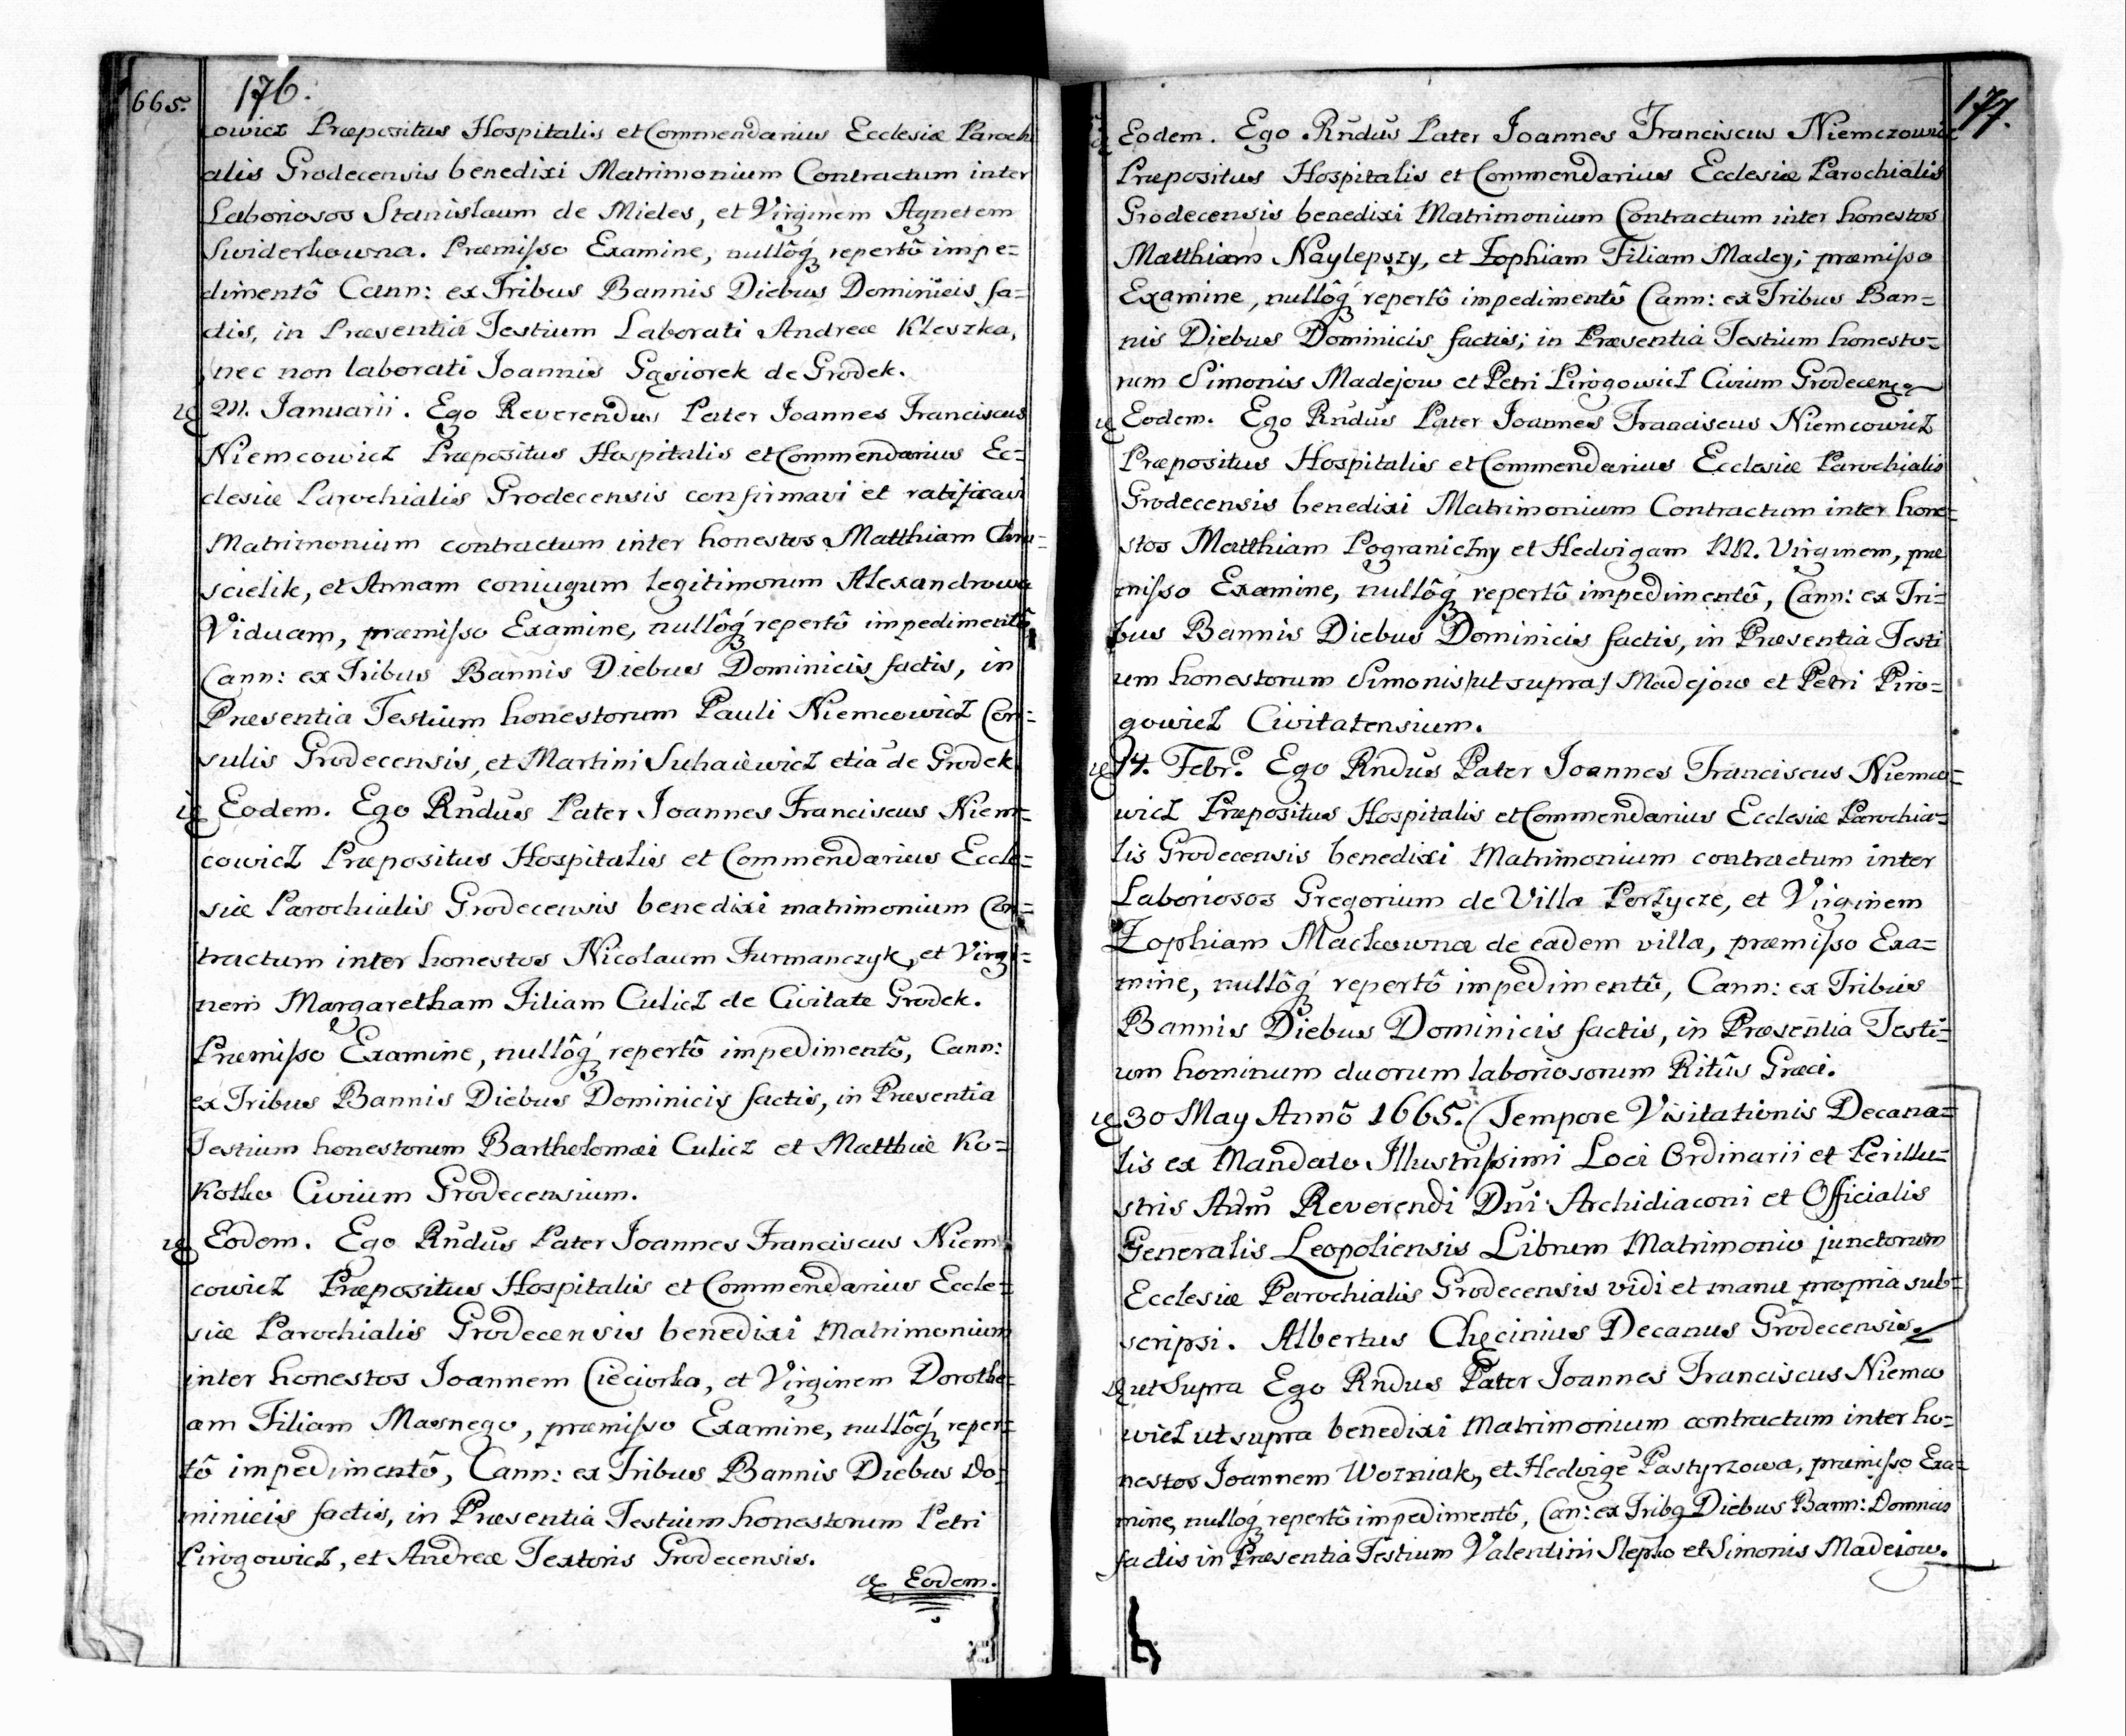 665.
176.
cowicz Præpositus Hospitalis et Commendarius Ecclesiæ Parochi
alis Grodecensis benedixi Matrimonium Contractum inter
Laboriosos Stanislaum de Mieles, et Virginem Agnetem
Swiderkowna. Præmisso Examine, nullôq́ repertô impe=
dimentô Cann: ex Tribus Bannis Diebus Dominicis fa=
ctis, in Præsentia Testium Laborati Andreæ Kleszka,
nec non laborati Joannis Gąsiorek de Grodek.
M. Januarii. Ego Reverendus Pater Joannes Franciscus
Niemcowicz Præpositus Hospitalis et Commendarius Ec=
clesiæ Parochialis Grodecensis confirmavi et ratificavi
Matrimonium contractum inter honestos Matthiam
scielik, et Annam coniugum legitimorum Alexandrowa
Viduam, præmisso Examine, nullôq́ repertô impedimentô
Cann: ex Tribus Bannis Diebus Dominicis factis, in
Præsentia Testium honestorum Pauli Niemcowicz Con=
sulis Grodecensis, et Martini Suhaiewicz etiā de Grodek.
Eodem. Ego Rndus Pater Joannes Franciscus Niem=
cowicz Præpositus Hospitalis et Commendarius Eccle=
siæ Parochialis Grodecensis benedixi matrimonium Con=
tractum inter honestos Nicolaum Furmanczyk, et Virgi=
nem Margaretham Filiam Culicz de Civitate Grodek.
Præmisso Examine, nullôq́ repertô impedimentô, Cann:
ex Tribus Bannis Diebus Dominicis factis, in Præsentia
Testium honestorum Bartholomæi Culicz et Matthiæ Ko=
kotko Civium Grodecensium.
Eodem. Ego Rndus Pater Joannes Franciscus Niem
cowicz Præpositus Hospitalis et Commendarius Eccle=
siæ Parochialis Grodecensis benedixi Matrimonium
inter honestos Joannem Cieciorka, et Virginem Dorothe=
am Filiam Masnego, præmisso Examine, nullôq́ reper=
tô impedimentô, Cann: ex Tribus Bannis Diebus Do=
minicis factis, in Præsentia Testium honestorum Petri
Pirogowicz, et Andreæ Textoris Grodecensis.
Eodem.
177.
Eodem. Ego Rndus Pater Joannes Franciscus Niemczowicz
Præpositus Hospitalis et Commendarius Ecclesiæ Parochialis
Grodecensis benedixi Matrimonium Contractum inter honestos
Matthiam Naylepszy, et Zophiam Filiam Madey; præmisso
Examine, nullôq́ repertô impedimentô Cann: ex Tribus Ban=
nis Diebus Dominicis factis; in Præsentia Testium honesto=
rum Simonis Madejow et Petri Pirogowicz Civium Grodecen
Eodem. Ego Rndus Pater Joannes Franciscus Niemcowicz
Præpositus Hospitalis et Commendarius Ecclesiæ Parochialis
Grodecensis benedixi Matrimonium Contractum inter hone=
stos Matthiam Pogranichny et Hedvigam NN. Virginem, præ
misso Examine, nullôq́ repertô impedimentô, Cann: ex Tri=
bus Bannis Diebus Dominicis factis, in Præsentia Testi
um honestorum Simonis /ut supra/ Madejow et Petri Piro=
gowicz Civitatensium.
14. Febr. Ego Rndus Pater Joannes Franciscus Niemco=
wicz Præpositus Hospitalis et Commendarius Ecclesiæ Parochia=
lis Grodecensis benedixi Matrimonium contractum inter
Laboriosos Gregorium de Villa Porzycze, et Virginem
Zophiam Mackowna de eadem villa, præmisso Exa=
mine, nullôq́ repertô impedimentô, Cann: ex Tribus
Bannis Diebus Dominicis factis, in Præsentia Testi=
um hominum duorum laboriosorum Ritûs Græci.
30 May Annô 1665. Tempore Visitationis Decana=
lis ex Mandato Illustrissimi Loci Ordinarii et Perillu=
stris Adm Reverendi Dni Archidiaconi et Officialis
Generalis Leopoliensis Librum Matrimonio junctorum
Ecclesiæ Parochialis Grodecensis vidi et manu propria sub=
scripsi. Albertus Chęcinius Decanus Grodecensis.
ut Supra Ego Rndus Pater Joannes Franciscus Niemco
wicz ut supra benedixi Matrimonium contractum inter ho=
nestos Joannem Wozniak, et Hedvige Pastyrzowa, præmisso Exa=
mine, nullôq́ repertô impedimentô, Can: ex Tribq Diebus Bann: Domnicis
factis in Præsentia Testium Valentini Slepko et Simonis Madeiow.